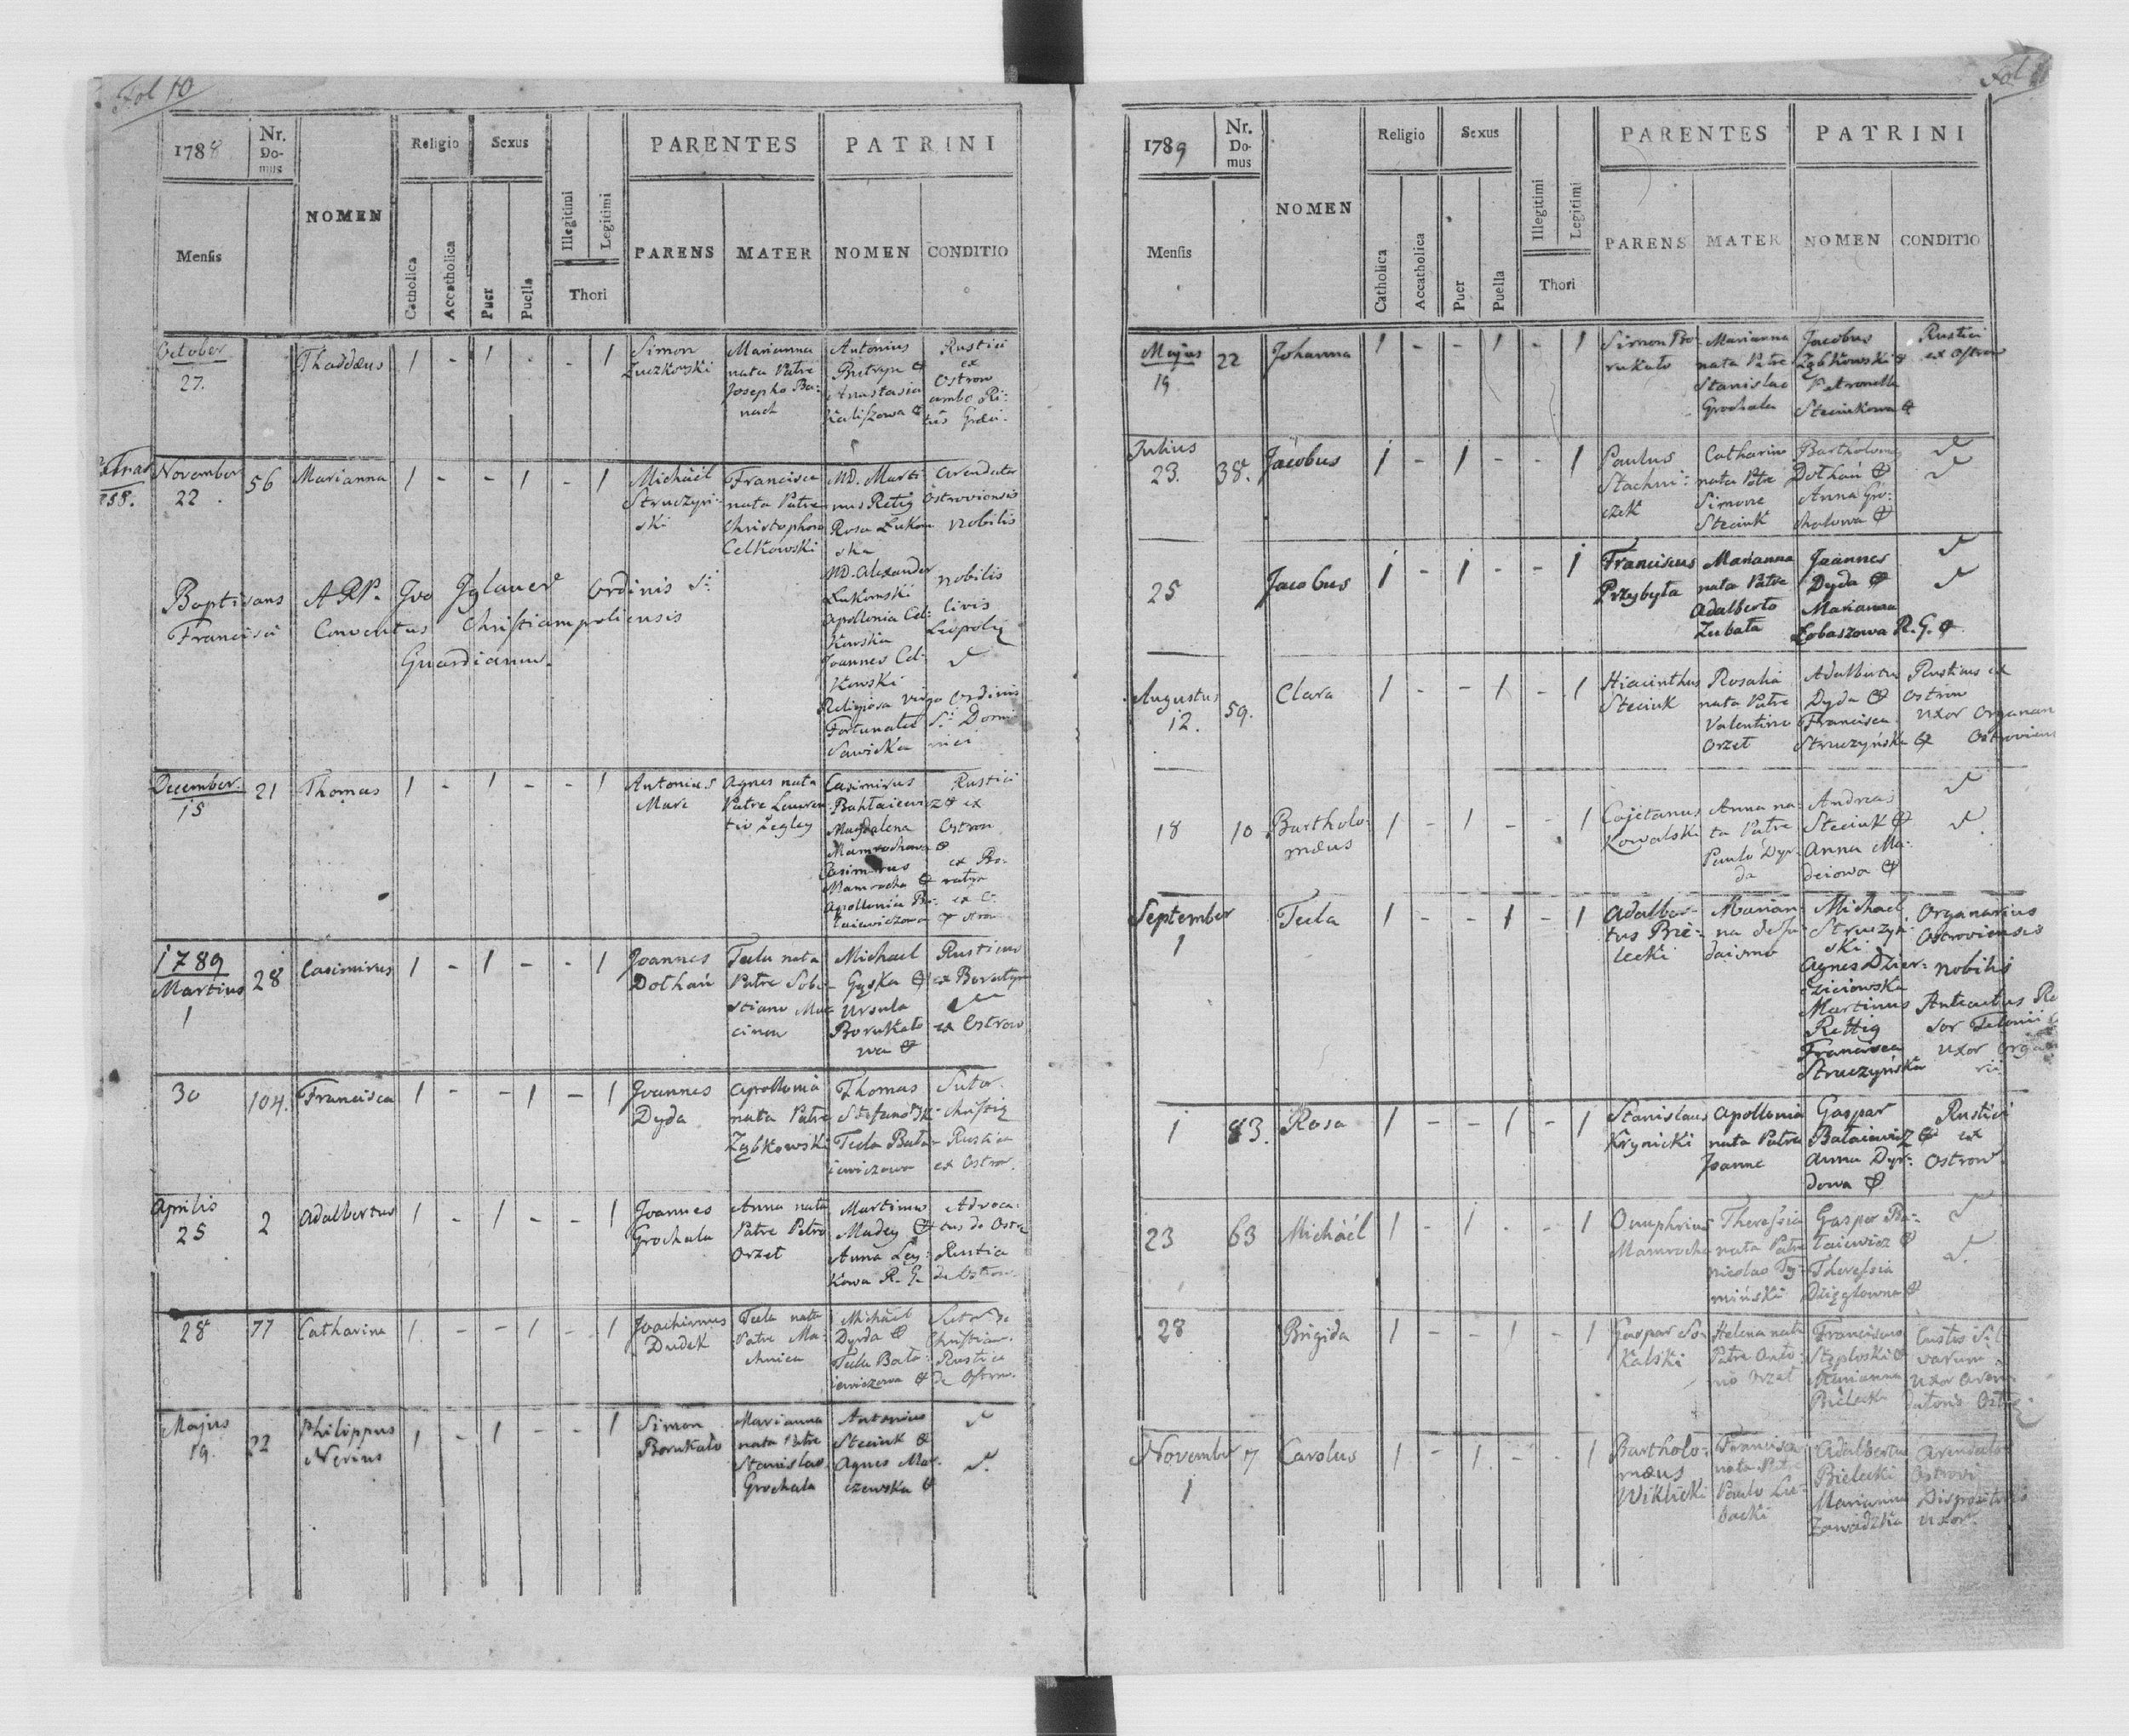 Fol 10
1788
Nr. Domus
NOMEN
Religio
Sexus
PARENTES
PATRINI
Mensis
Catholica
Accatholica
Puer
Puella
Illegitimi
Legitimi
Thori
PARENS
MATER
NOMEN
CONDITIO
October 27. Thaddæus 1 - 1 - - 1
Simon
Marianna
nata Patre
Josepho Ba:
nach
Antonius
Anastasia
Rustici
ex
Ostrow
ambo Ri:
tus
November 22. 56 Marianna 1 - - 1 - 1
Michäel
Struczyń:
ski
Francisca
nata Patre
Christophoro
Celkowski
MD. Marti
nus Retig
Rosa Lukow
ska
MD. Alexander
Lukomski
Apollonia Cel:
kowska
Joannes Cel:
kowski
Religiosa virgo
Fortunata
Sawicka
Arendator
Ostroviensis
Nobilis
Nobilis
Civis
Leopolię
Ordinis
S: Domi
nici
Baptisans ARP. Ivo Iglauer Ordinis S:
Francisci Conventus Christiampoliensis
Guardianus.
December 15 21 Thomas 1 - 1 - - 1
Antonius
Agnes nata
Patre Lauren
tio
Casimirus
Magdalena
Casimirus
Mamrocha
Apollonia
Rustici
ex
Ostrow
1789
Martius 1 28 Casimirus 1 - 1 - - 1
Joannes
Dothań
Tecla nata
Patre Seba
stiano
Michael
Gąska
Ursula
Borukało
wa
Rusticus
ex Boratyn
ex Ostrow
30 104. Francisca 1 - - 1 - 1
Joannes
Dyda
Apollonia
nata Patre
Ząbkowski
Thomas
Tecla Bata
iewiczowa
Sutor
Rustica
ex Ostrow.
Aprilis 25 2 Adalbertus 1 - 1 - - 1
Joannes
Grochala
Anna nata
Patre Petro
Orzet
Martinus
Madey
Anna Ley:
kowa R. G.
Advoca:
tus de Ostr
Rustica
de Ostrow.
28 77 Catharina 1 - - 1 - 1
Joachimus
Dudek
Tecla nata
Patre
Michäel
Dyrda
Tecla Bata:
iewiczowa
Sutor
Rustica
de Ostrow.
Majus 19. 22 Philippus Nerius 1 - 1 - - 1
Simon
Borukało
Marianna
nata Patre
Stanislao
Grochala
Antonius
Steciuk
Agnes Mar:
czewska
1789
Nr. Domus
NOMEN
Religio
Sexus
PARENTES
PATRINI
Mensis
Catholica
Accatholica
Puer
Puella
Illegitimi
Legitimi
Thori
PARENS
MATER
NOMEN
CONDITIO
Majus 19 22 Johanna 1 - - 1 - 1
Simon Bo-
rukało
Marianna
nata Patre
Stanislao
Grochala
Jacobus
Ząbkowski
Petronella
Steciukowa
Rustici
ex Ostrow
Julius 23. 38. Jacobus 1 - 1 - - 1
Paulus
Stachni:
czek
Catharina
nata Patre
Simone
Steciuk
Bartholomę
Dothań
Anna Gro:
chalowa
25 Jacobus 1 - 1 - - 1
Franciscus
Przybyła
Marianna
nata Patre
Adalberto
Zubata
Joannes
Dyda
Marianna
Łobaszowa R. G.
Augustus 12. 59. Clara 1 - - 1 - 1
Hiacinthus
Steciuk
Rosalia
nata Patre
Valentino
Orzet
Adalbertus
Dyda
Francisca
Struczyńska
Rusticus ex
Ostrow
Uxor Organar
Ostroviens
18 10 Bartholo:
mæus 1 - 1 - - 1
Cajetanus
Kowalski
Anna na:
ta Patre
Paulo Dyr:
da
Andreas
Steciuk
Anna Ma:
deiowa
September 1 Tecla 1 - - 1 - 1
Adalber-
tus Bie-
lecki
Marian:
na
Michael
Struczyń:
ski
Agnes
Martinus
Rettig
Francisca
Struczyńska
Organarius
Ostroviensis
Nobilis
Uxor
1 83. Rosa 1 - - 1 - 1
Stanislaus
Krynicki
Apollonia
nata Patre
Joanne
Gaspar
Bataiewicz
Anna Dyr:
dowa
Rustici
ex
Ostrow.
23 63 Michäel 1 - 1 - - 1
Onuphrius
Mamrocha
Theressia
nata Patre
Nicolao Ty-
miński
Gaspar Ba:
taiewicz
Theressia
28 Brigida 1 - - 1 - 1
Gaspar So-
kalski
Helena nata
Patre Anto:
nio Orzet
Franciscus
Marianna
Bielecka
Custos Sil
varum
Uxor Aren:
datoris
November 1 17 Carolus 1 - 1 - - 1
Bartholo:
mæus
Wiklicki
Francisca
nata Patre
Paulo
Adalbertus
Bielecki
Marianna
Zawadzka
Arendator
Ostrovi
Uxor